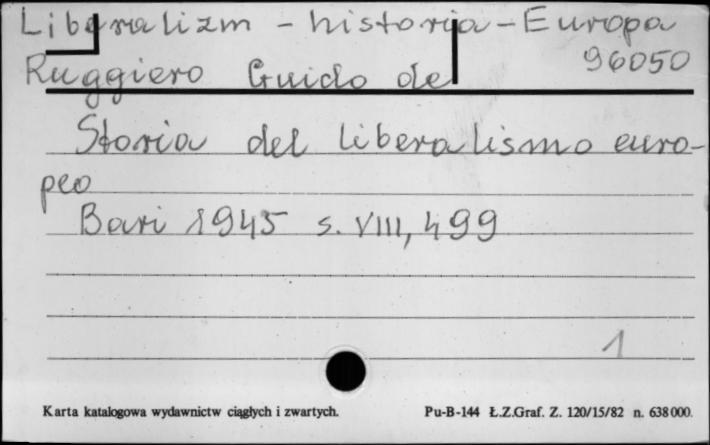 Liberalizm - historia - Europa
96050
Ruggiero Guido de
Storia del liberalismo euro-
peo
Bari 1945 s. VIII, 499
1
Karta katalogowa wydawnictw ciągłych i zwartych. Pu-B-144 Ł.Z.Graf. Z. 120/15/82 n. 638000.